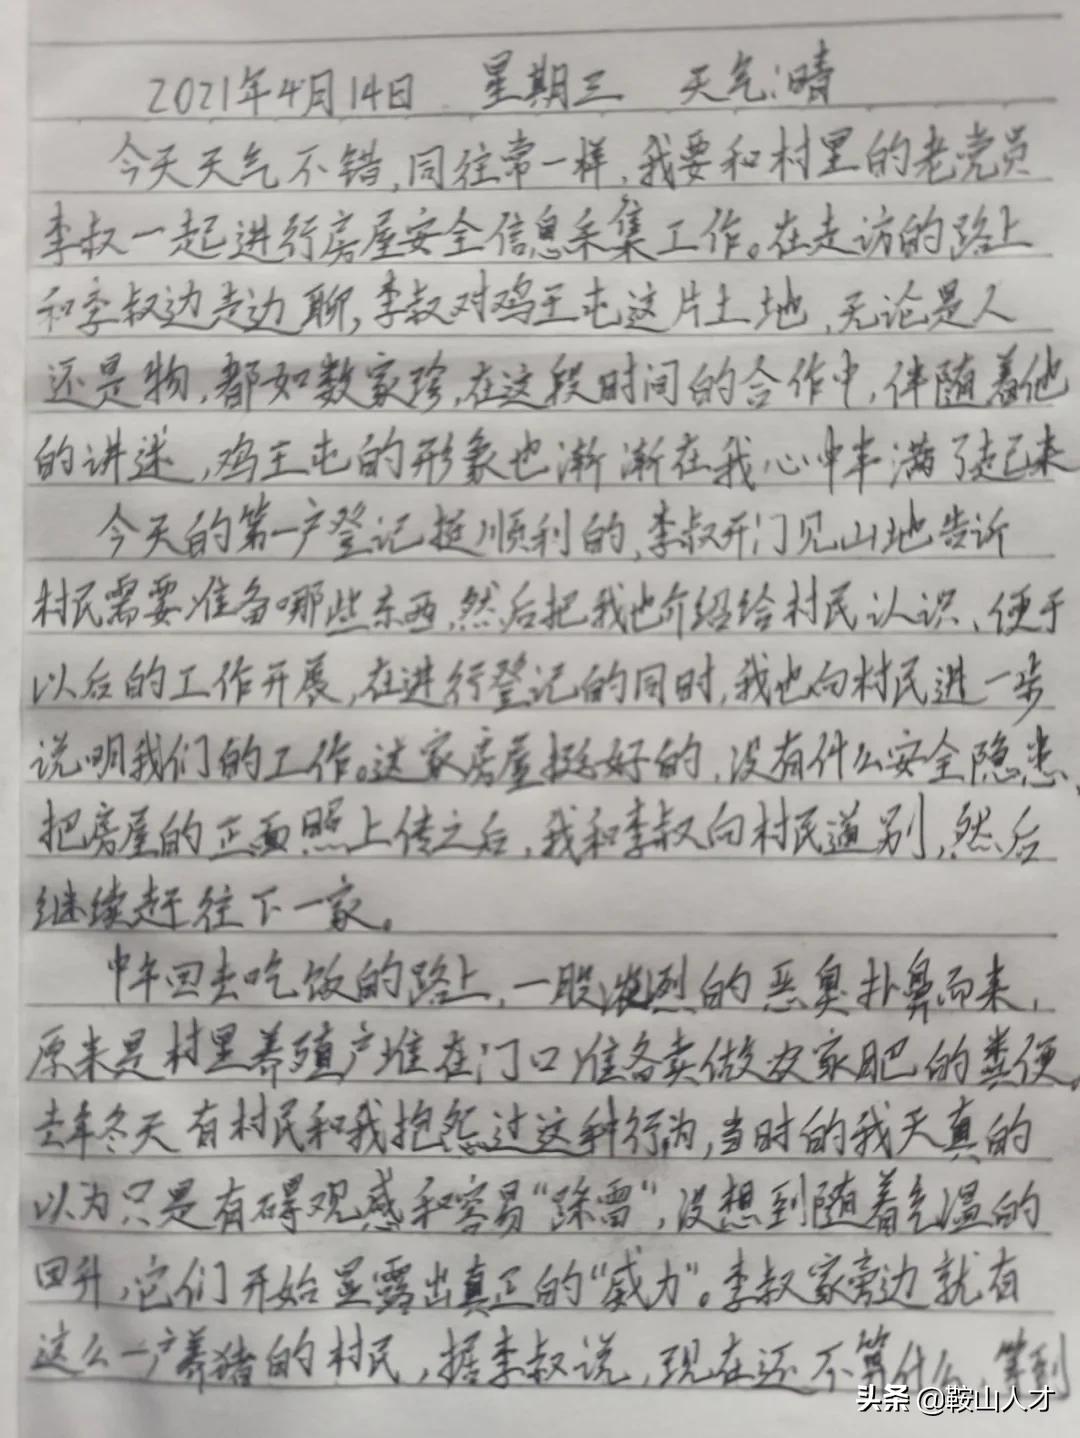 2021年4月14日 星期三 天气:晴
今天天气不错,同往常一样,我要和村里的老党员
李叔一起进行房屋安全信息采集工作。在走访的路上
和李叔边走边聊,李叔对鸡王屯这片土地,无论是人
还是物,都如数家珍,在这段时间的合作中,伴随着他
的讲述,鸡王屯的形象也渐渐在我心中丰满了起来
今天的第一户登记挺顺利的,李叔开门见山地告诉
村民需要准备哪些东西,然后把我也介绍给村民认识、便于
以后的工作开展,在进行登记的同时,我也向村民进一步
说明我们的工作。这家房屋挺好的,没有什么安全隐患,
把房屋的正面照上传之后,我和李叔向村民道别,然后
继续赶往下一家。
中午回去吃饭的路上,一股浓烈的恶臭扑鼻而来,
原来是村里养殖户堆在门口准备卖做农家肥的粪便。
去年冬天有村民和我抱怨过这种行为,当时的我天真的
以为只是有碍观感和容易“踩雷”,没想到随着气温的
回升,它们开始显露出真正的“威力”。李叔家旁边就有
这么一户养猪的村民,据李叔说,现在还不算什么,等到
头条 @鞍山人才